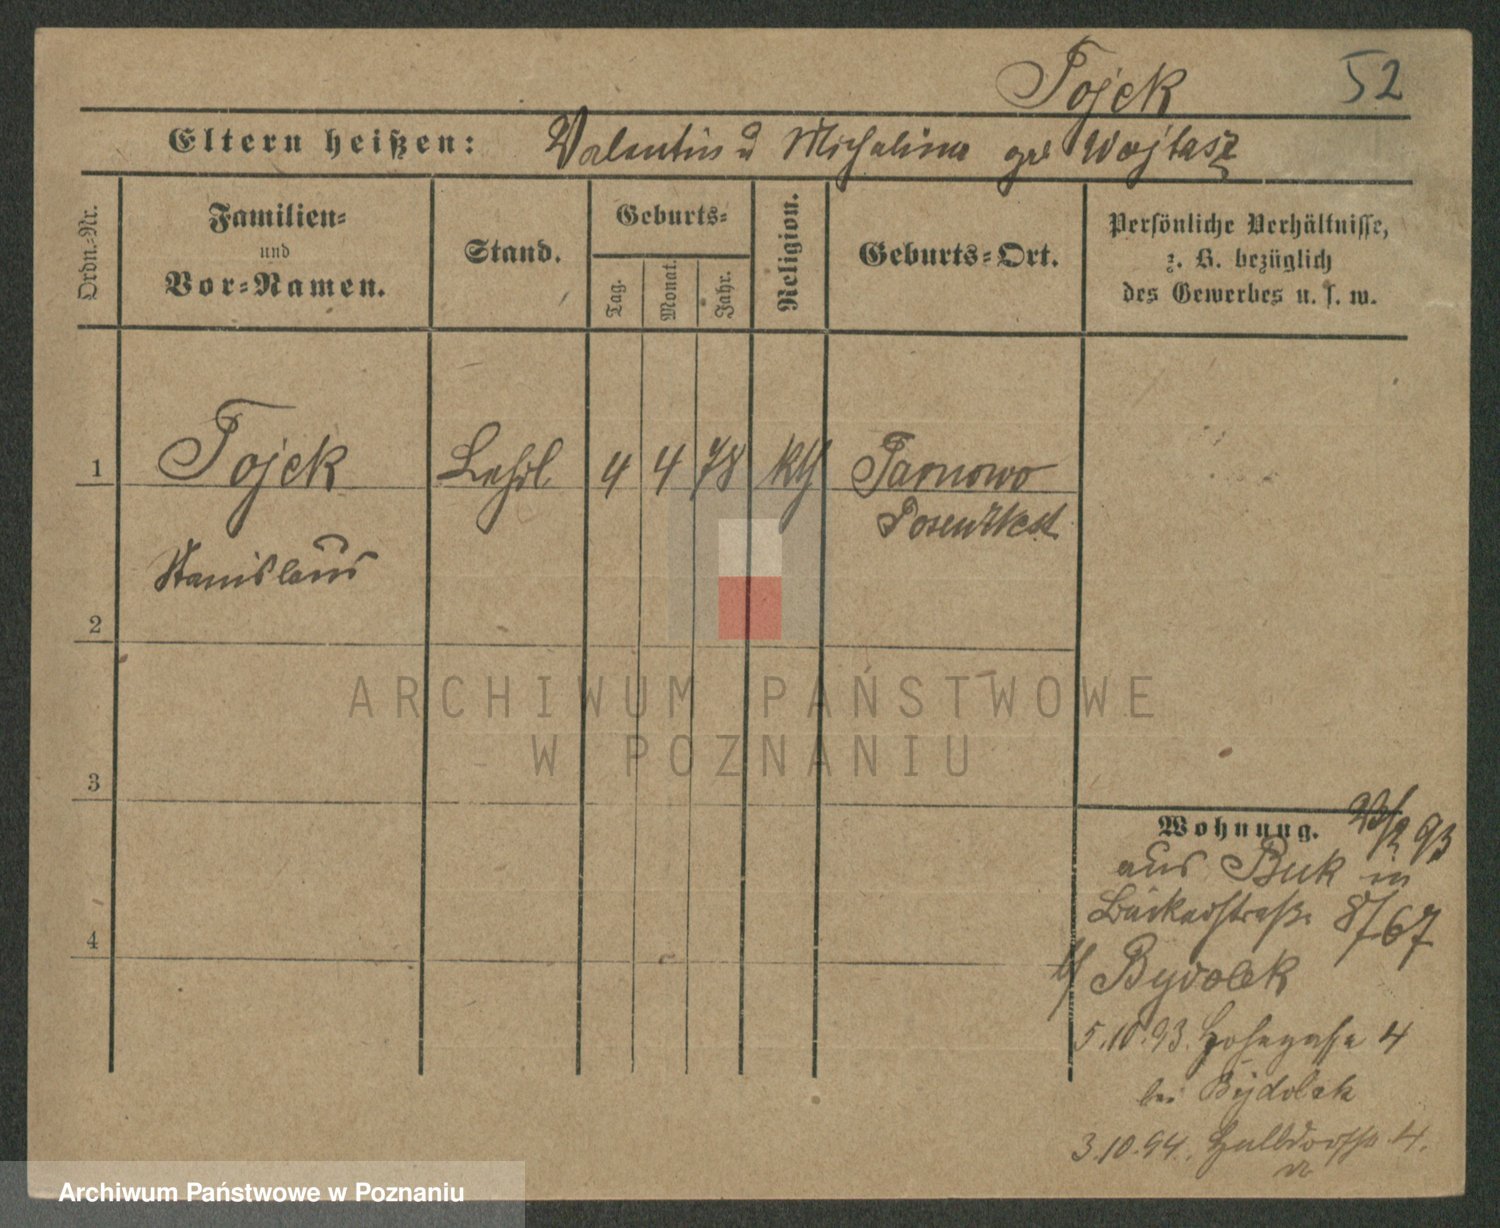 Tojek 52
Eltern heißen: Valentin u Michalina geb Wojtasz
Ordn.-Nr.
Familien-
und
Vor-Namen.
Stand.
Geburts-
Tag.
Monat.
Jahr.
Religion.
Geburts-Ort.
Persönliche Verhältnisse,
z. B. bezüglich
des Gewerbes u. s. w.
1 Tojek Lehrl. 4 4 78 kth Tarnowo
Posen West
Stanislaus
2
3
4
Wohnung. 23/2 93
aus Buk in
Bäckerstraße 8/67
b/ Bydolek
5.10.93. Hohegasse 4
bei Bydolek
3.10.94. Halbdorfstr 4.
ARCHIWUM PAŃSTWOWE
W POZNANIU
Archiwum Państwowe w Poznaniu